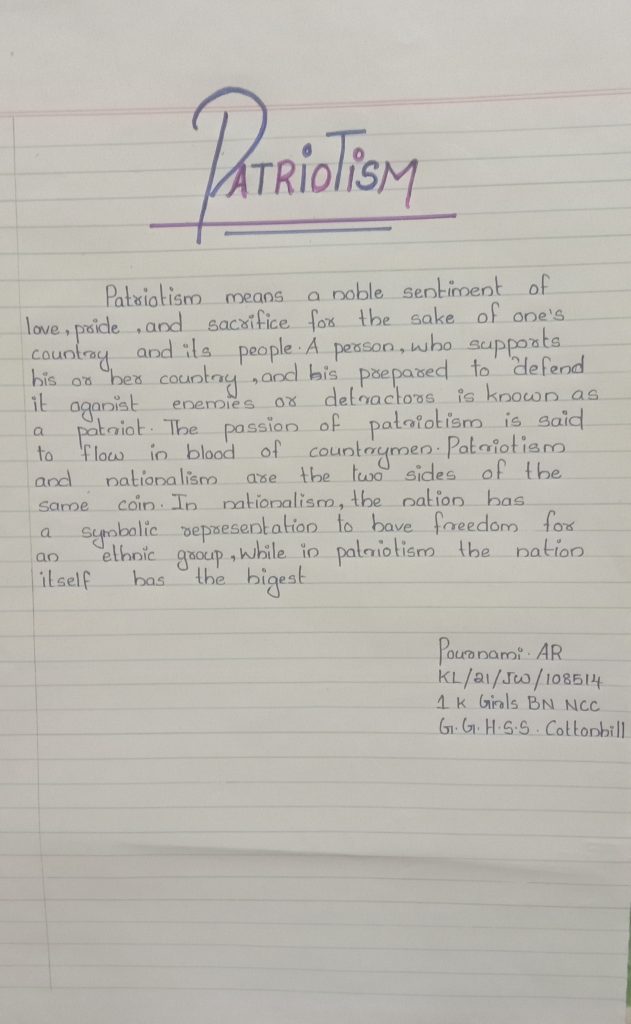 PATRIOTISM
Patriotism means a noble sentiment of
love, pride , and sacrifice for the sake of one's
country and its people. A person, who supports
his or her country , and his prepared to defend
it aganist enemies or detractors is known as
a patriot. The passion of patriotism is said
to flow in blood of countrymen. Patriotism
and nationalism are the two sides of the
same coin. In nationalism, the nation has
a symbolic representation to have freedom for
an ethnic group, while in patriotism the nation
itself has the bigest
Pournami. AR
KL/21/JW/108514
1 K Girls BN NCC
G.G.H.S.S. Cottonhill